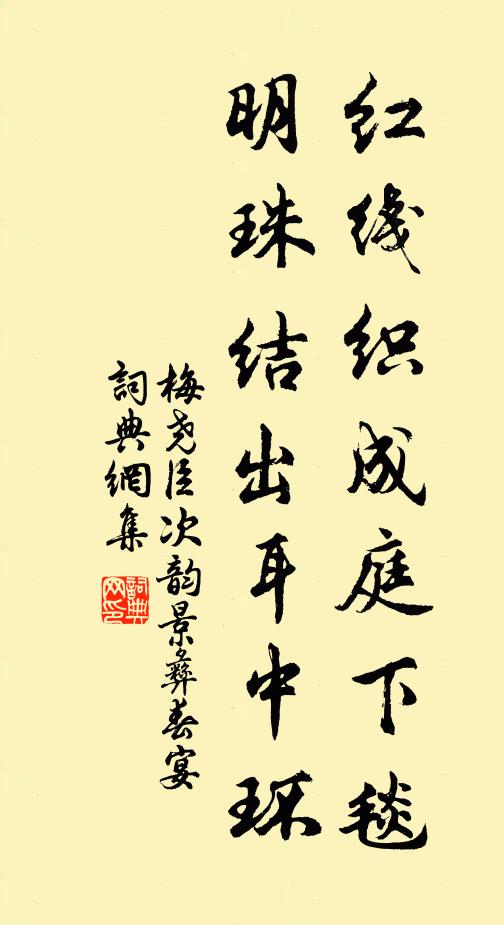 红线织成庭下毯
明珠结出耳中环
梅尧臣次韵景彝春宴
詞典網集
詞典
网印